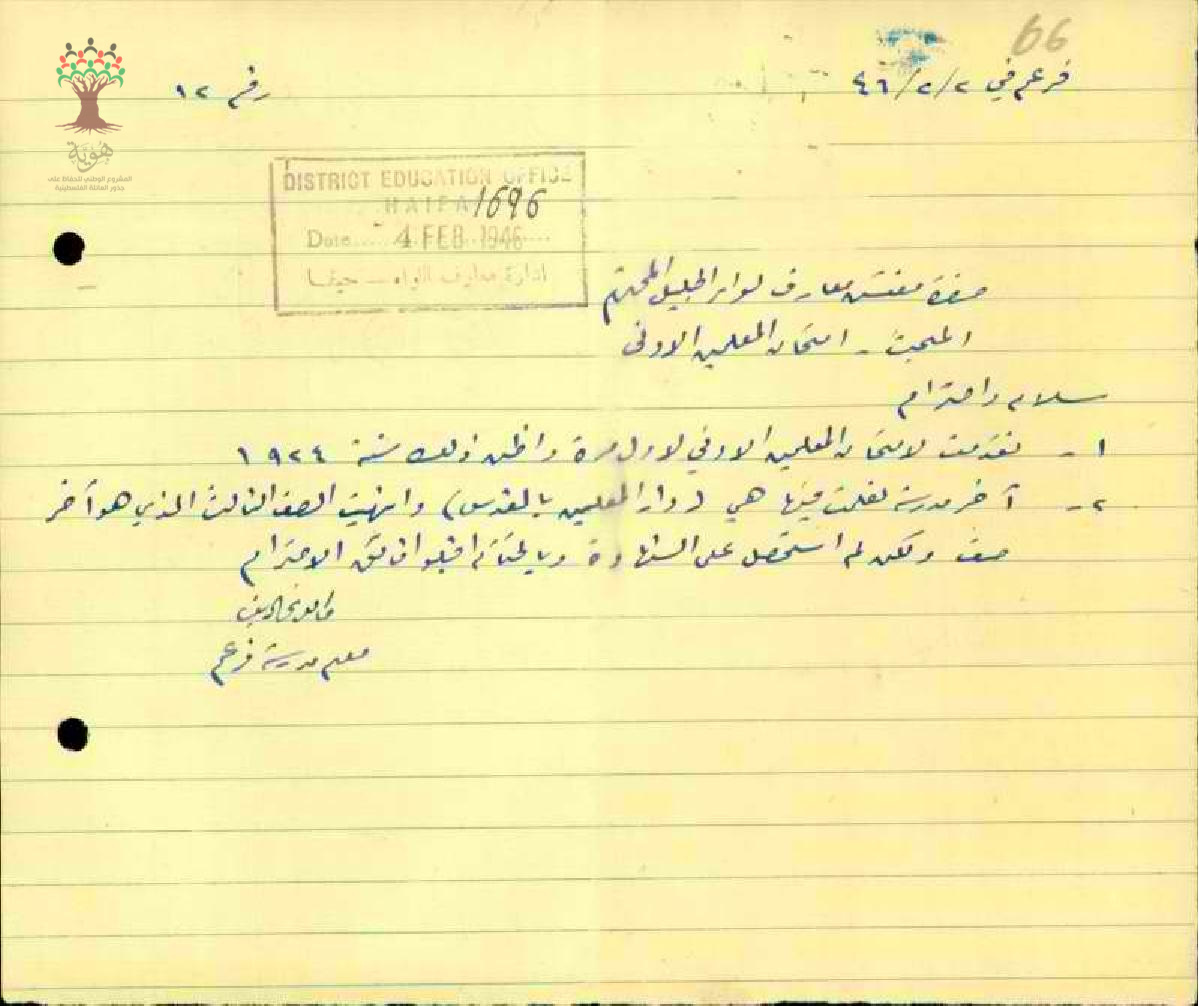 66
فرعم في ٢/٢/٤٦
رقم ١٢
هوية
المشروع الوطني للحفاظ على
جذور العائلة الفلسطينية
DISTRICT EDUCATION OFFICE
HAIFA 1696
Date 4 FEB 1946
ادارة معارف اللواء — حيفا
حضرة مفتش معارف لواء الجليل المحترم
المبحث - امتحان المعلمين الادنى
سلام واحترام
١- تقدمت لامتحان المعلمين الادنى لاول مرة واظن ذلك سنة ١٩٢٤
٢- آخر مدرسة تعلمت فيها هي (دار المعلمين بالقدس) وانهيت الصف الثالث الذي هو آخر
صف ولكن لم استحصل على الشهادة وبالختام اقبلوا فائق الاحترام
معلم مدرسة فرعم